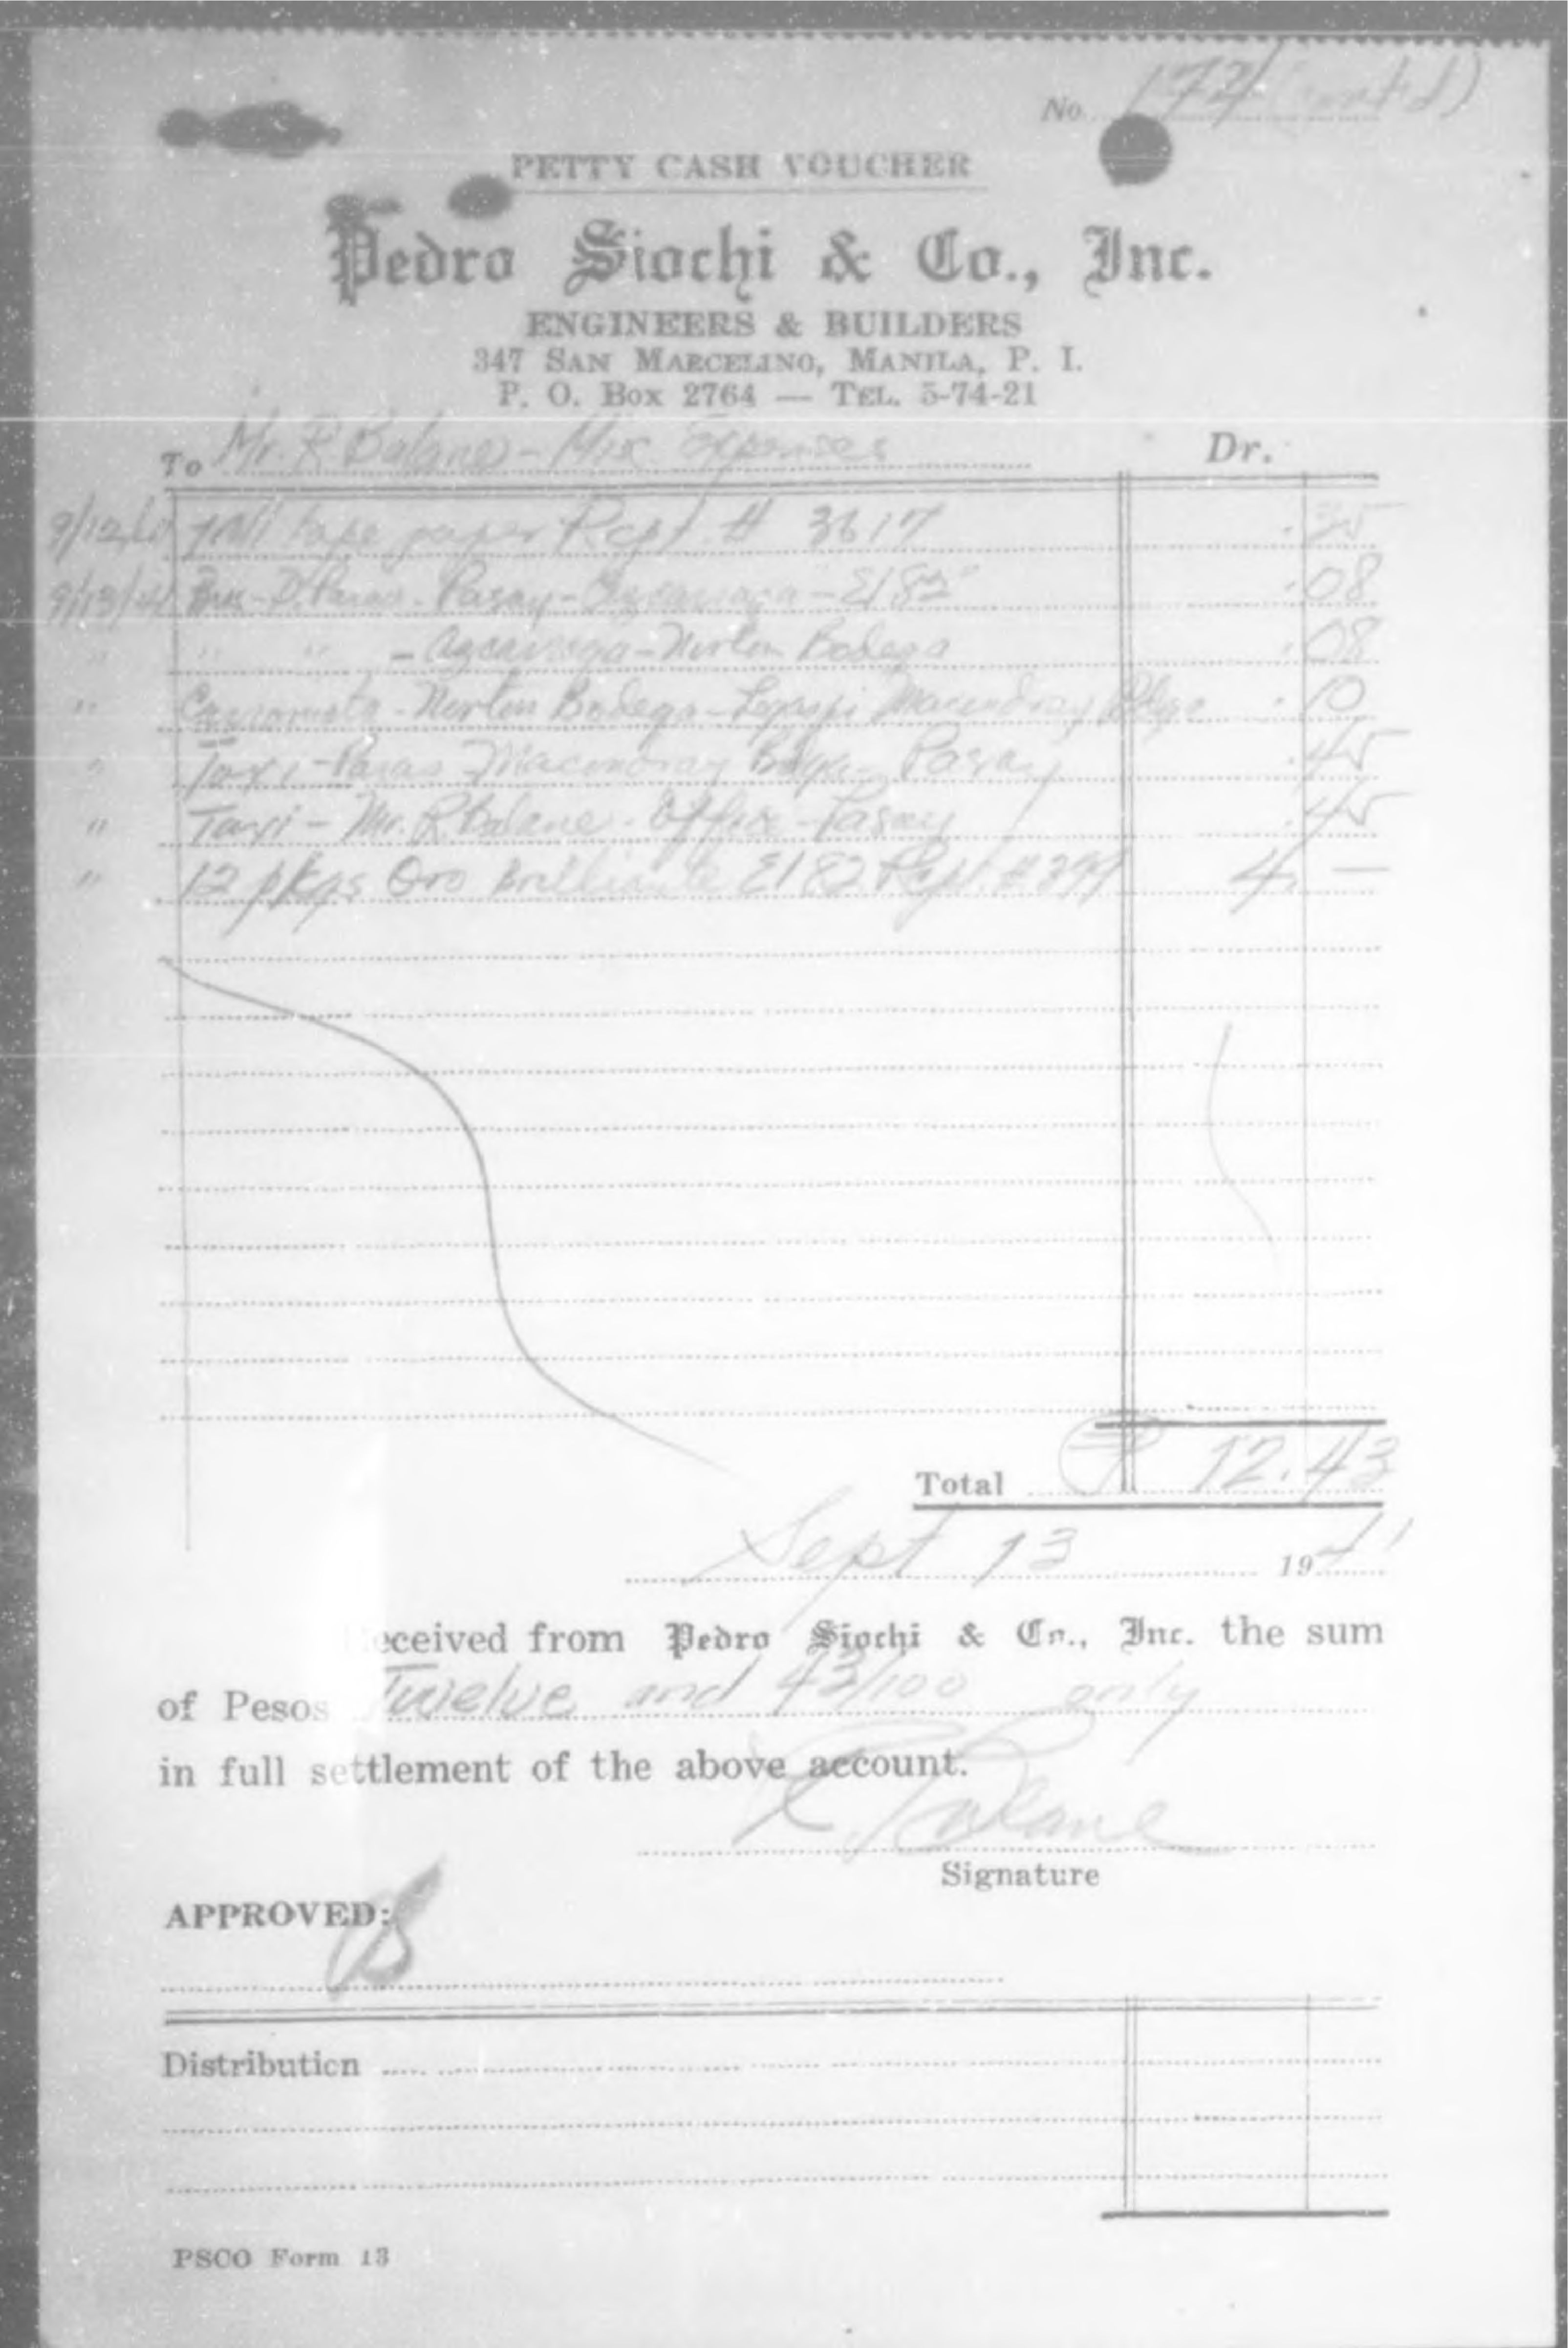 No. 172 (cont'd)
PETTY CASH VOUCHER
Pedro Siochi & Co., Inc.
ENGINEERS & BUILDERS
347 SAN MARCELINO, MANILA, P. I.
P. O. Box 2764 — TEL. 5-74-21
To Mr. R Balane - Misc. Expenses Dr.
9/12/41 1 roll tape paper Rcpt. # 3617 .35
9/13/41 Bus - D. Paras - Pasay - Azcarraga - E182 .08
" " " - Azcarraga - Norton Bodega .08
" Carromata - Norton Bodega - Legaspi Macondray Bldg. .10
" Taxi - Paras Macondray Bldg. - Pasay .45
" Taxi - Mr. R Balane - Office - Pasay .45
" 12 pkgs Oro Brilliante E182 Rcpt # 299 4. —
Total ₱ 12.43
Sept 13 1941
eceived from Pedro Siochi & Co., Inc. the sum
of Pesos Twelve and 43/100 only
in full settlement of the above account.
R Balane
Signature
APPROVED:
Distribution
PSCO Form 13